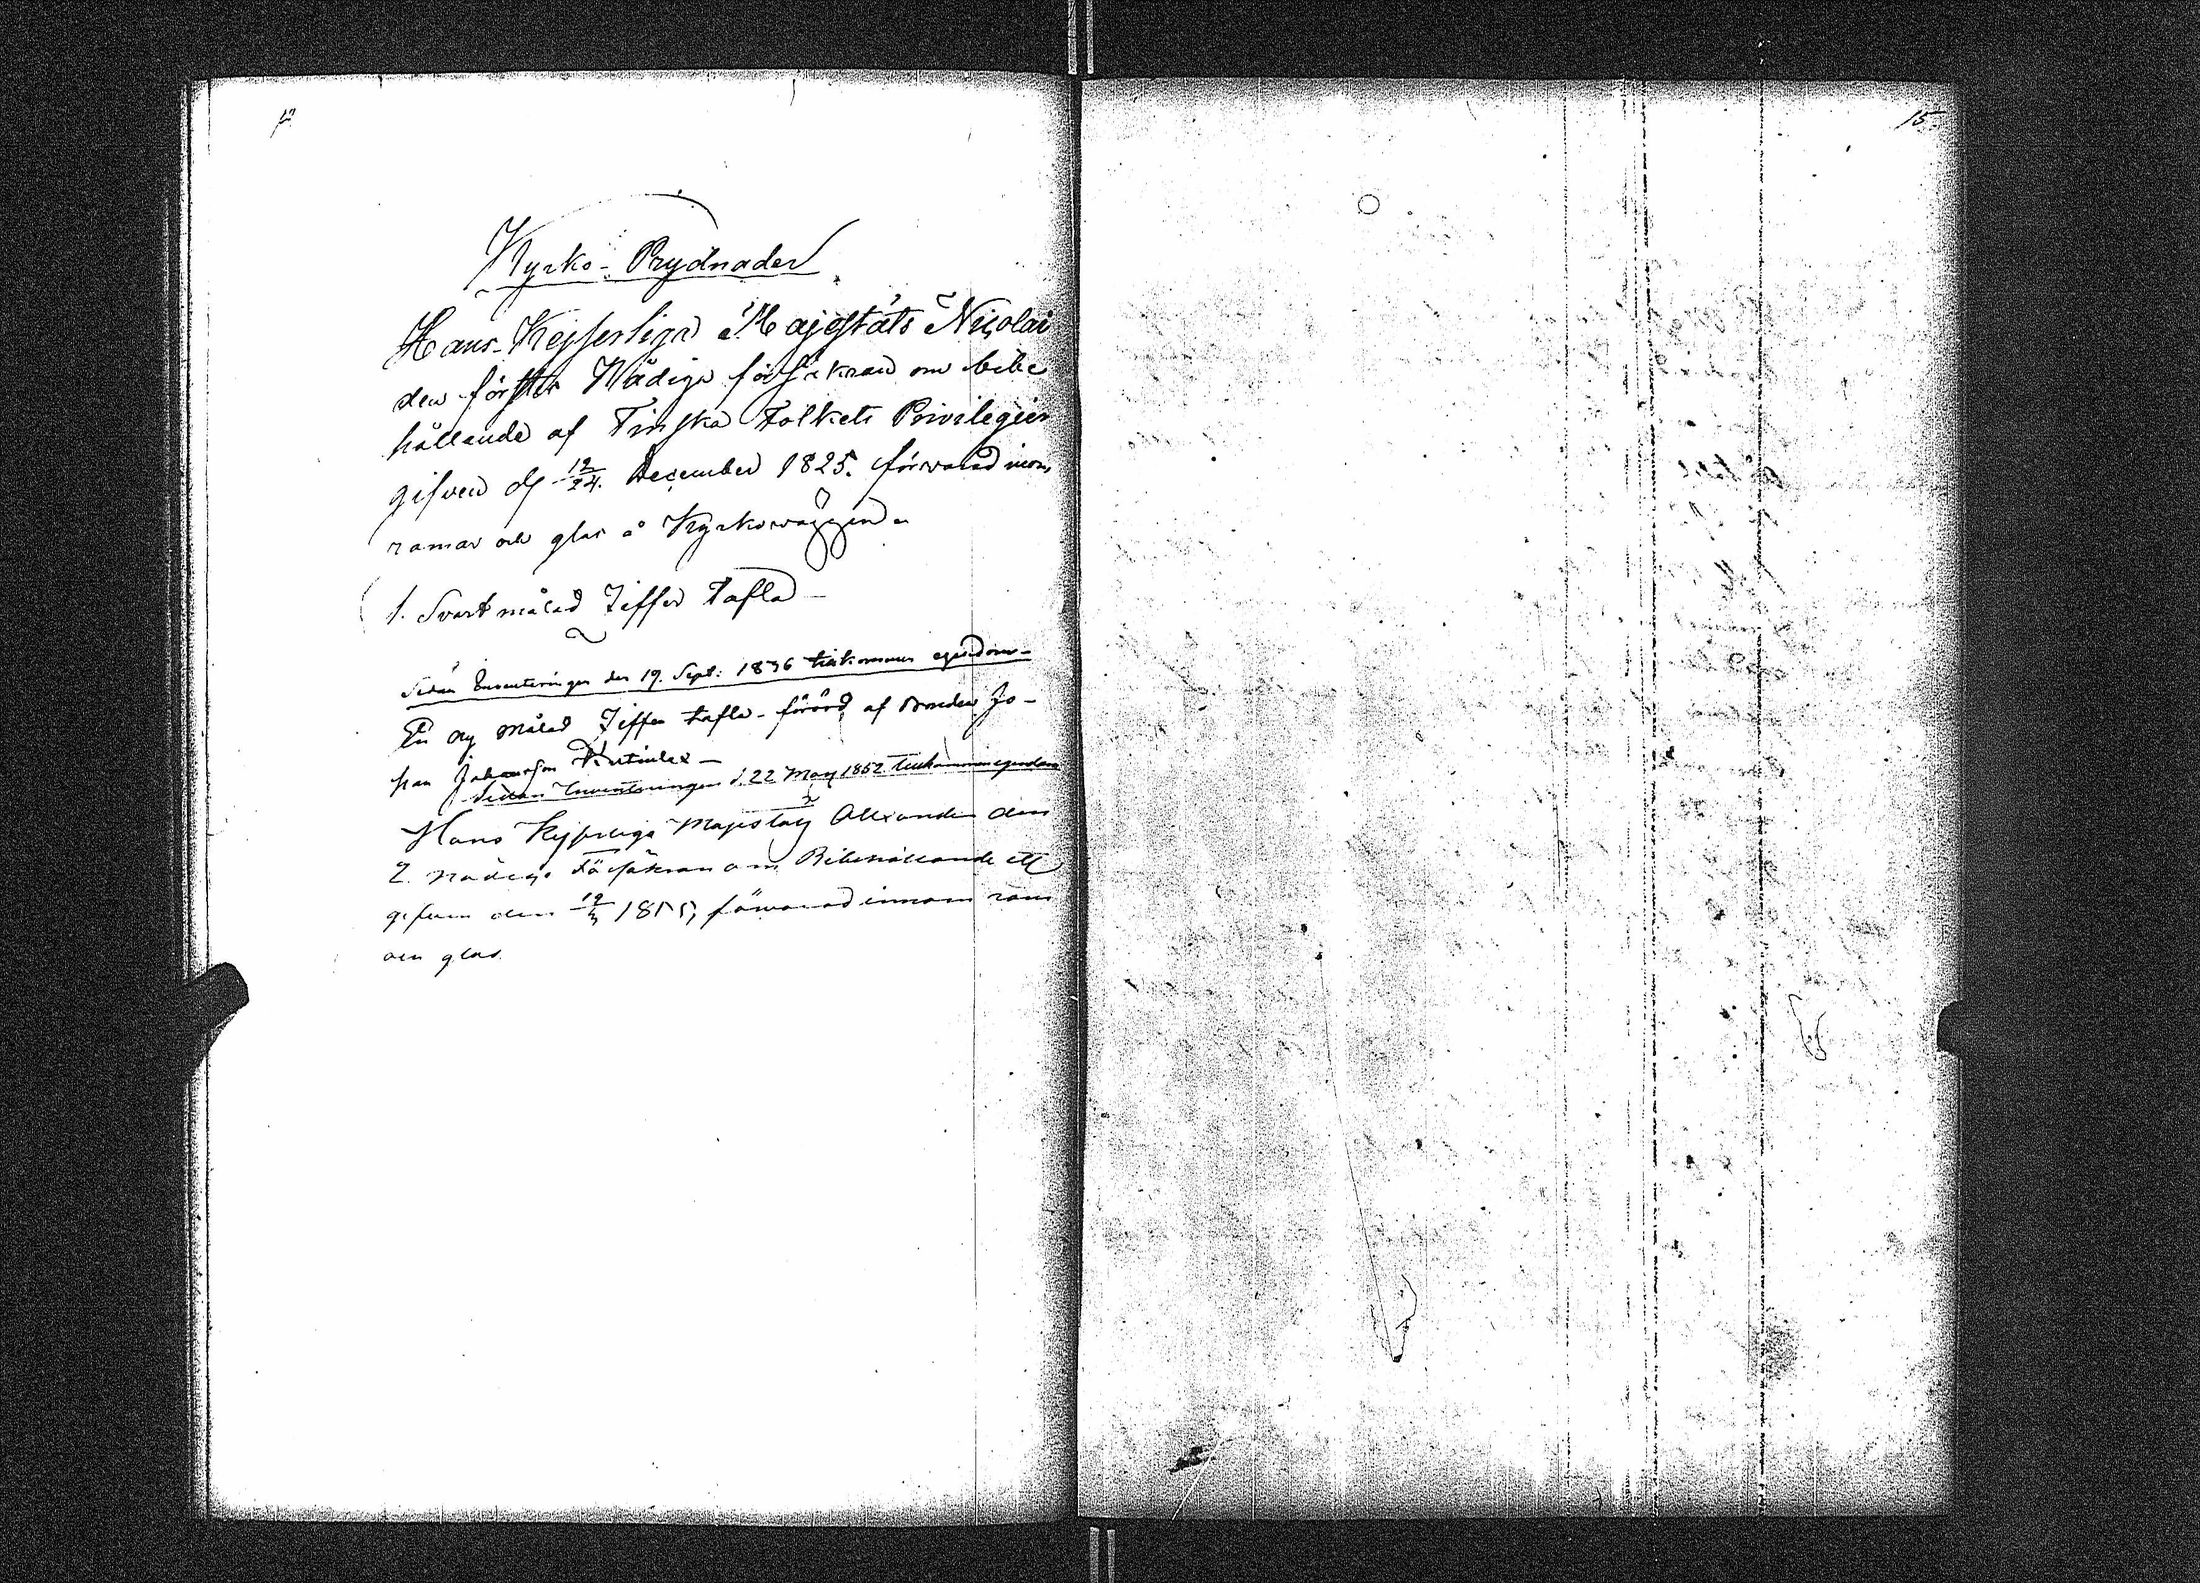 15
Kyrko-Prydnader
Hans Kejserliga Majestäts Nicolai
den förstes Nådiga försäkran om bibe
hållande af Finska Folkets Privilegier
gifven d 12/24. December 1825. förvarad inom
ramar och glas å Kyrkoväggen.
1. Svart målad Ziffer tafla
Sedan Inventeringen den 19. Sept: 1836 tillkommen egendom
En ny målad Ziffer tafla förärd af Bonden Jo-
han Johansson
Sedan Inventeringen d. 22 May 1852 tillkommen egendom
Hans Kejserliga Majestäts Alexander den
2. nådiga Försäkran om Bibehållande etc
gifven den 1855, förvarad innom ram
och glas.